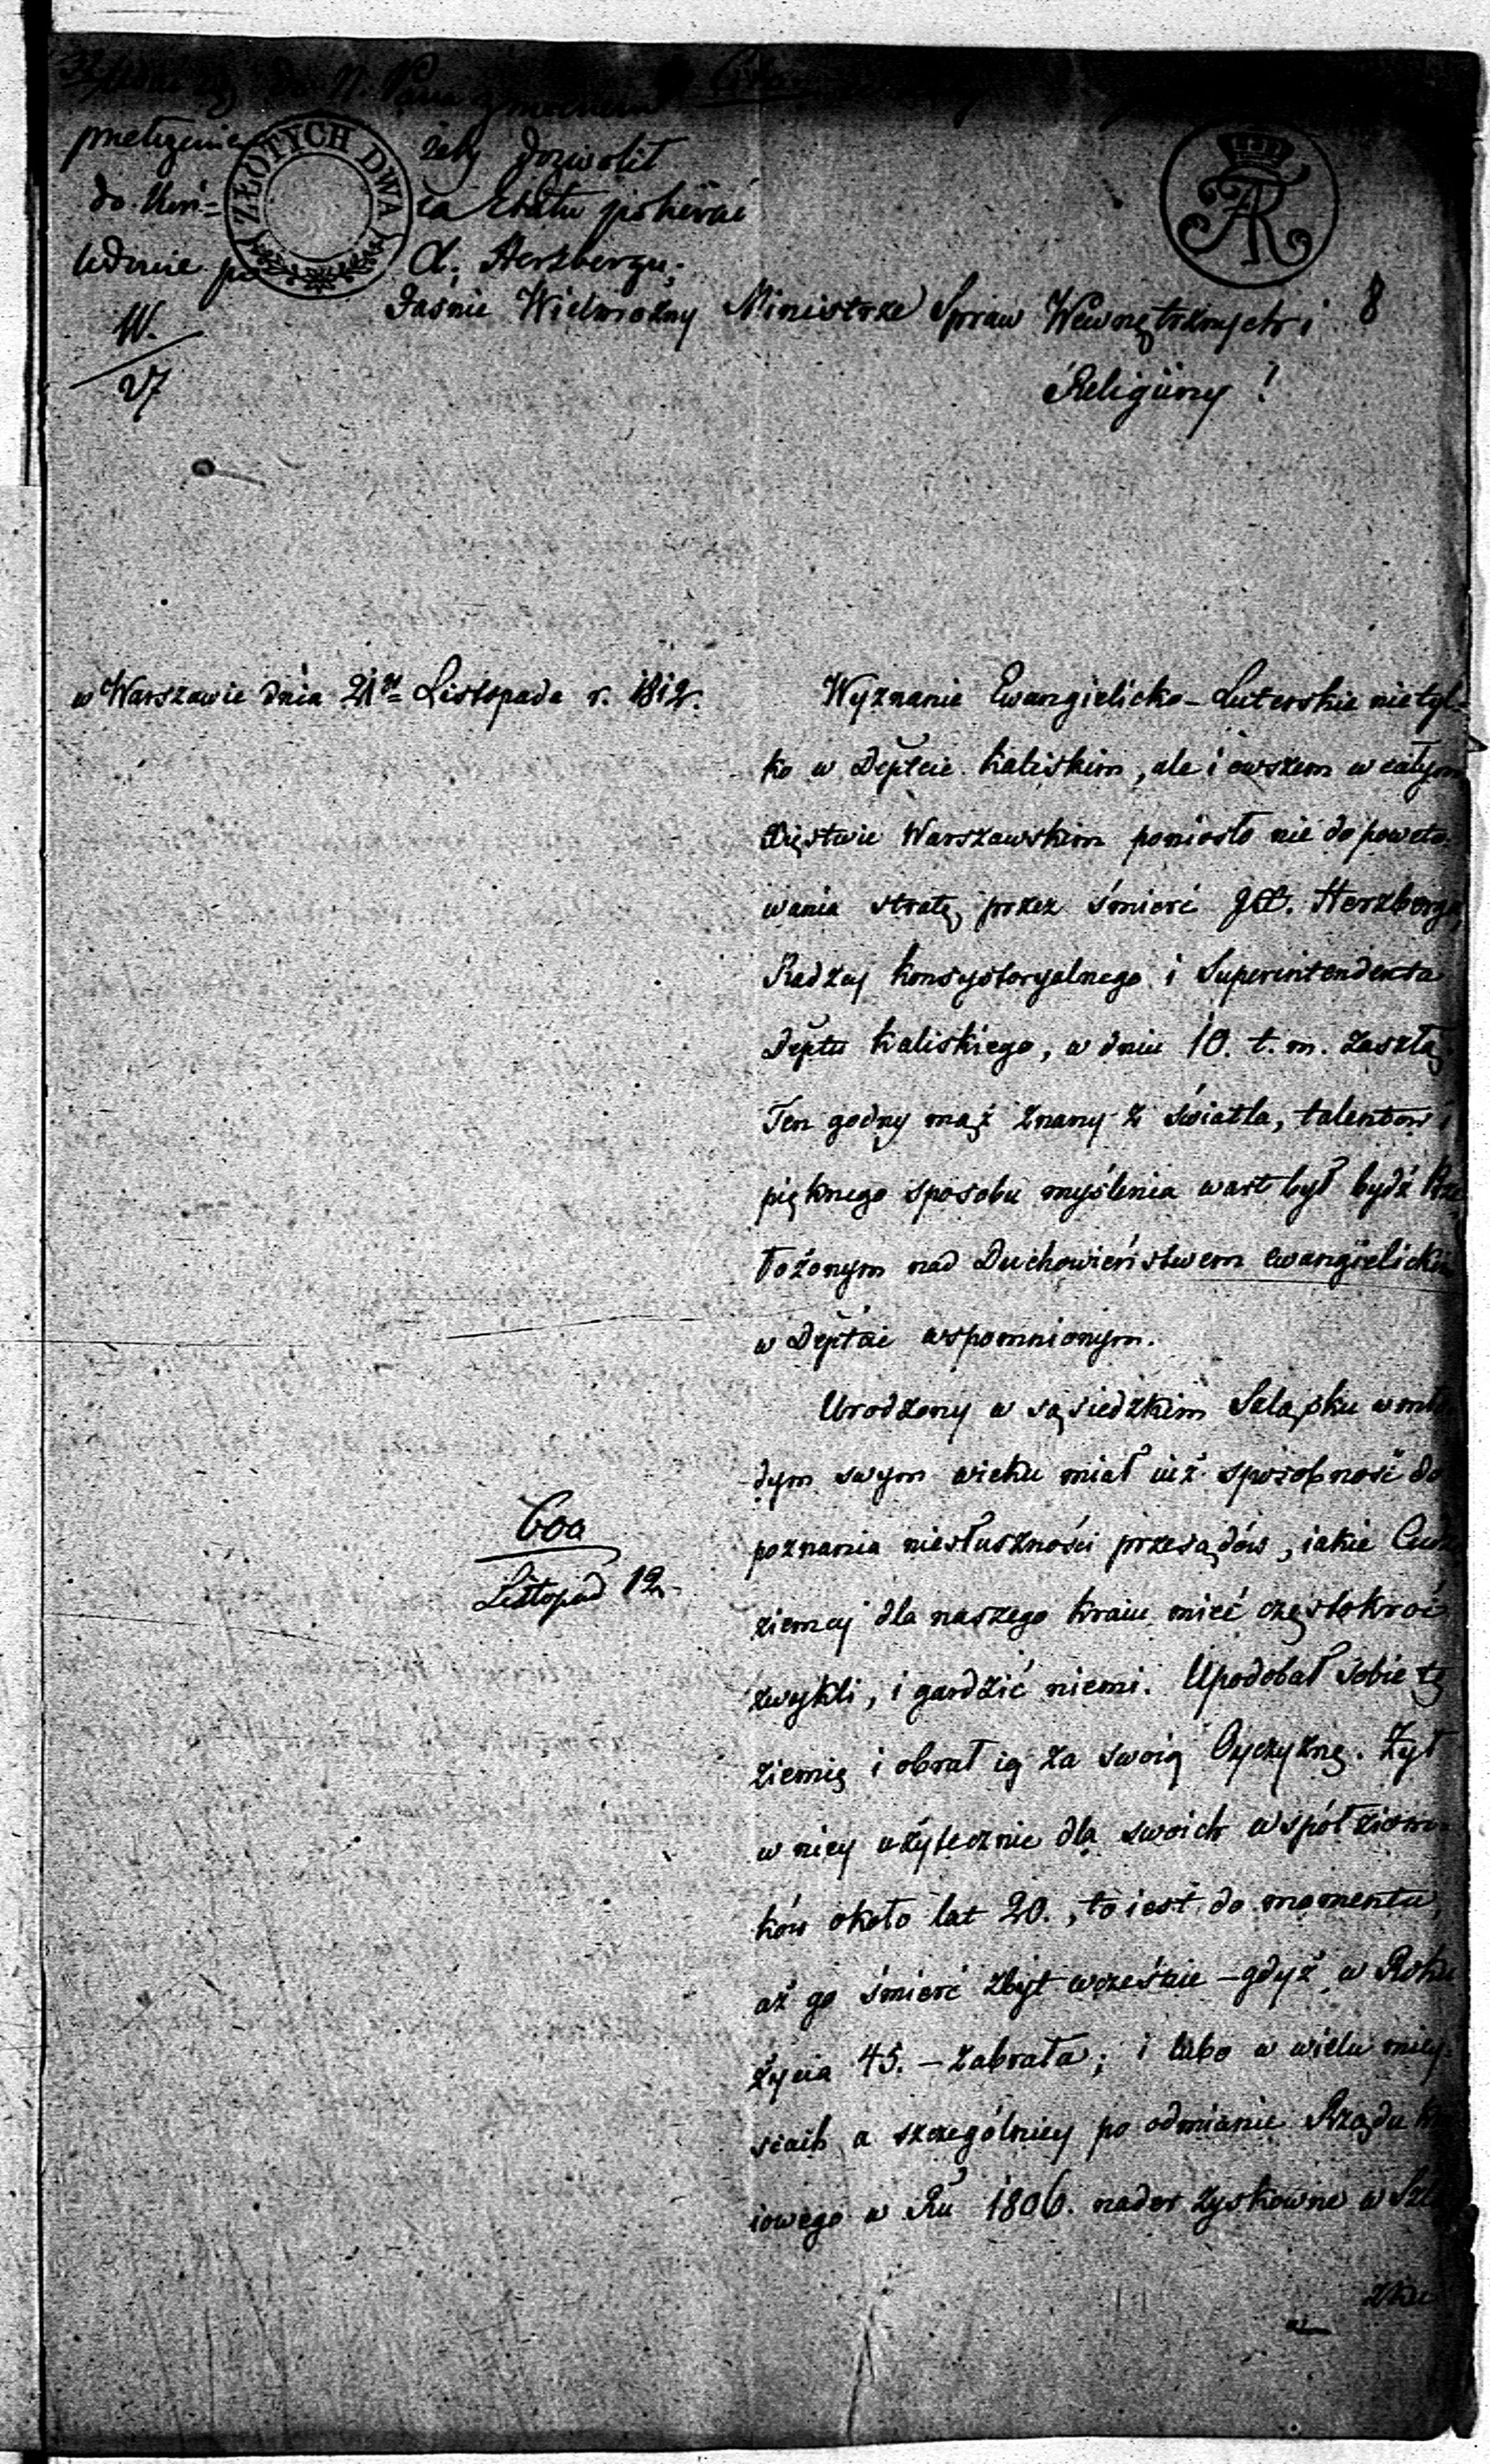 do N. Pana
żeby dozwolił
ZŁOTYCH DWA
do
Etatu
A. Herzbergu.
W.
27
8
Jaśnie Wielmożny Ministrze Spraw Wewnętrznych i
Religiiny!
w Warszawie dnia 21 Listopada r. 1812.
Wyznanie Ewangielicko-Luterskie nietyl=
ko w Depĉie Kaliskim, ale i owszem w całym
Xięstwie Warszawskim poniosło nie do poweto=
wania stratę przez śmierć JX. Herzberga,
Radzcy Konsystoryalnego i Superintendenta
Deptu Kaliskiego, w dniu 10. t. m. zaszłą.
Ten godny mąż znany z światła, talentow i
pięknego sposobu myślenia wart był bydź
łożonym nad Duchowieństwem ewangielickim
w Deptcie wspomnionym.
Urodzony w sąsiedzkim Szląsku w
dym swym wieku miał iuż sposobność do
poznania niesłuszności przesądów, iakie Cudzo
ziemcy dla naszego kraiu mieć częstokroć
zwykli, i gardzić niemi. Upodobał sobie tę
ziemię i obrał ią za swoią Oyczyznę. Żył
w niey użytecznie dla swoich współziom=
ków około lat 20., to iest do momentu,
aż go śmierć zbyt wcześnie – gdyż w Roku
życia 45. – zabrała; i lubo w wielu miey=
scach a szczególniey po odmianie Rządu
iowego w Ru 1806. nader zyskowne w Szlą
zku
600
Listopad 12.